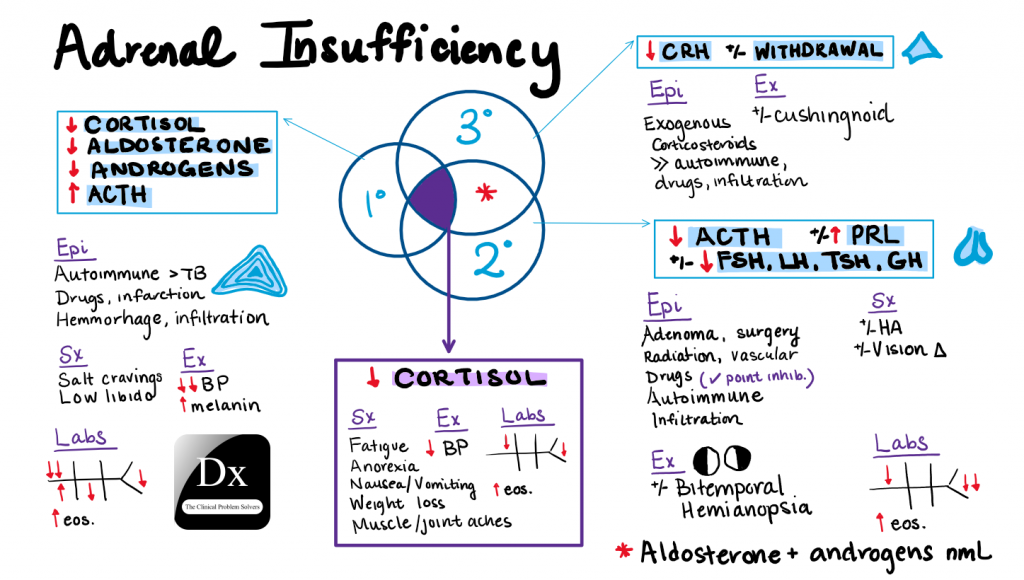 Adrenal Insufficiency
↓ CORTISOL
↓ ALDOSTERONE
↓ ANDROGENS
↑ ACTH
Epi
Autoimmune > TB
Drugs, infarction
Hemmorhage, infiltration
Sx
Salt cravings
Low libido
Ex
↓↓ BP
↑ melanin
Labs
↓↓ ↑ ↓ ↓
↑ eos.
Dx
The Clinical Problem Solvers
1°
3°
*
2°
↓ CORTISOL
Sx
Fatigue
Anorexia
Nausea/Vomiting
Weight loss
Muscle/joint aches
Ex
↓ BP
Labs
↓ ↓
↑ eos.
↓ CRH +/- WITHDRAWAL
Epi
Exogenous
Corticosteroids
≫ autoimmune,
drugs, infiltration
Ex
+/- cushingnoid
↓ ACTH +/- ↑ PRL
+/- ↓ FSH, LH, TSH, GH
Epi
Adenoma, surgery
Radiation, vascular
Drugs (✓ point inhib.)
Autoimmune
Infiltration
Sx
+/- HA
+/- Vision Δ
Ex
+/- Bitemporal
Hemianopsia
Labs
↓ ↓↓
↑ eos.
* Aldosterone + androgens nmL